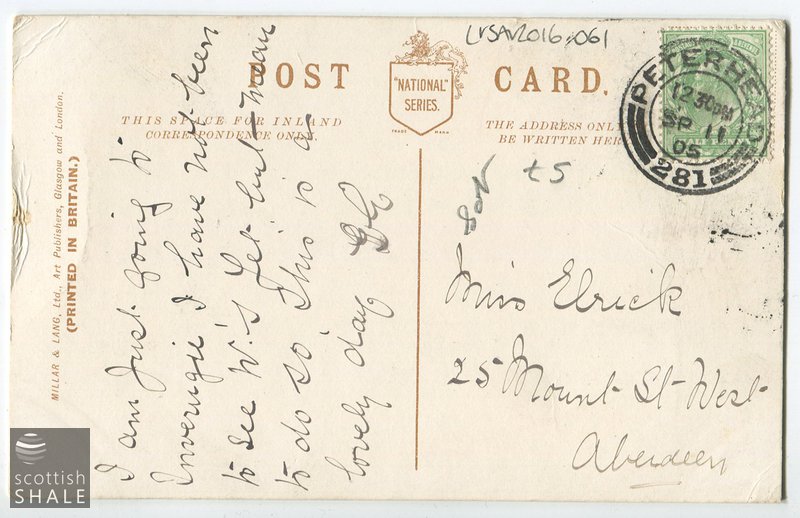 LVSAV2016.061
POST CARD.
"NATIONAL"
SERIES.
TRADE MARK
THIS SPACE FOR INLAND
CORRESPONDENCE ONLY.
THE ADDRESS ONLY
BE WRITTEN HERE
PETERHEAD
12 30PM
SP 11
05
281
£5
I am just going to
Inverugie I have not been
to see W.'s yet but mean
to do so This is a
lovely day
Miss Elrick
25 Mount St West
Aberdeen
MILLAR & LANG, Ltd., Art Publishers, Glasgow and London.
(PRINTED IN BRITAIN.)
scottish
SHALE